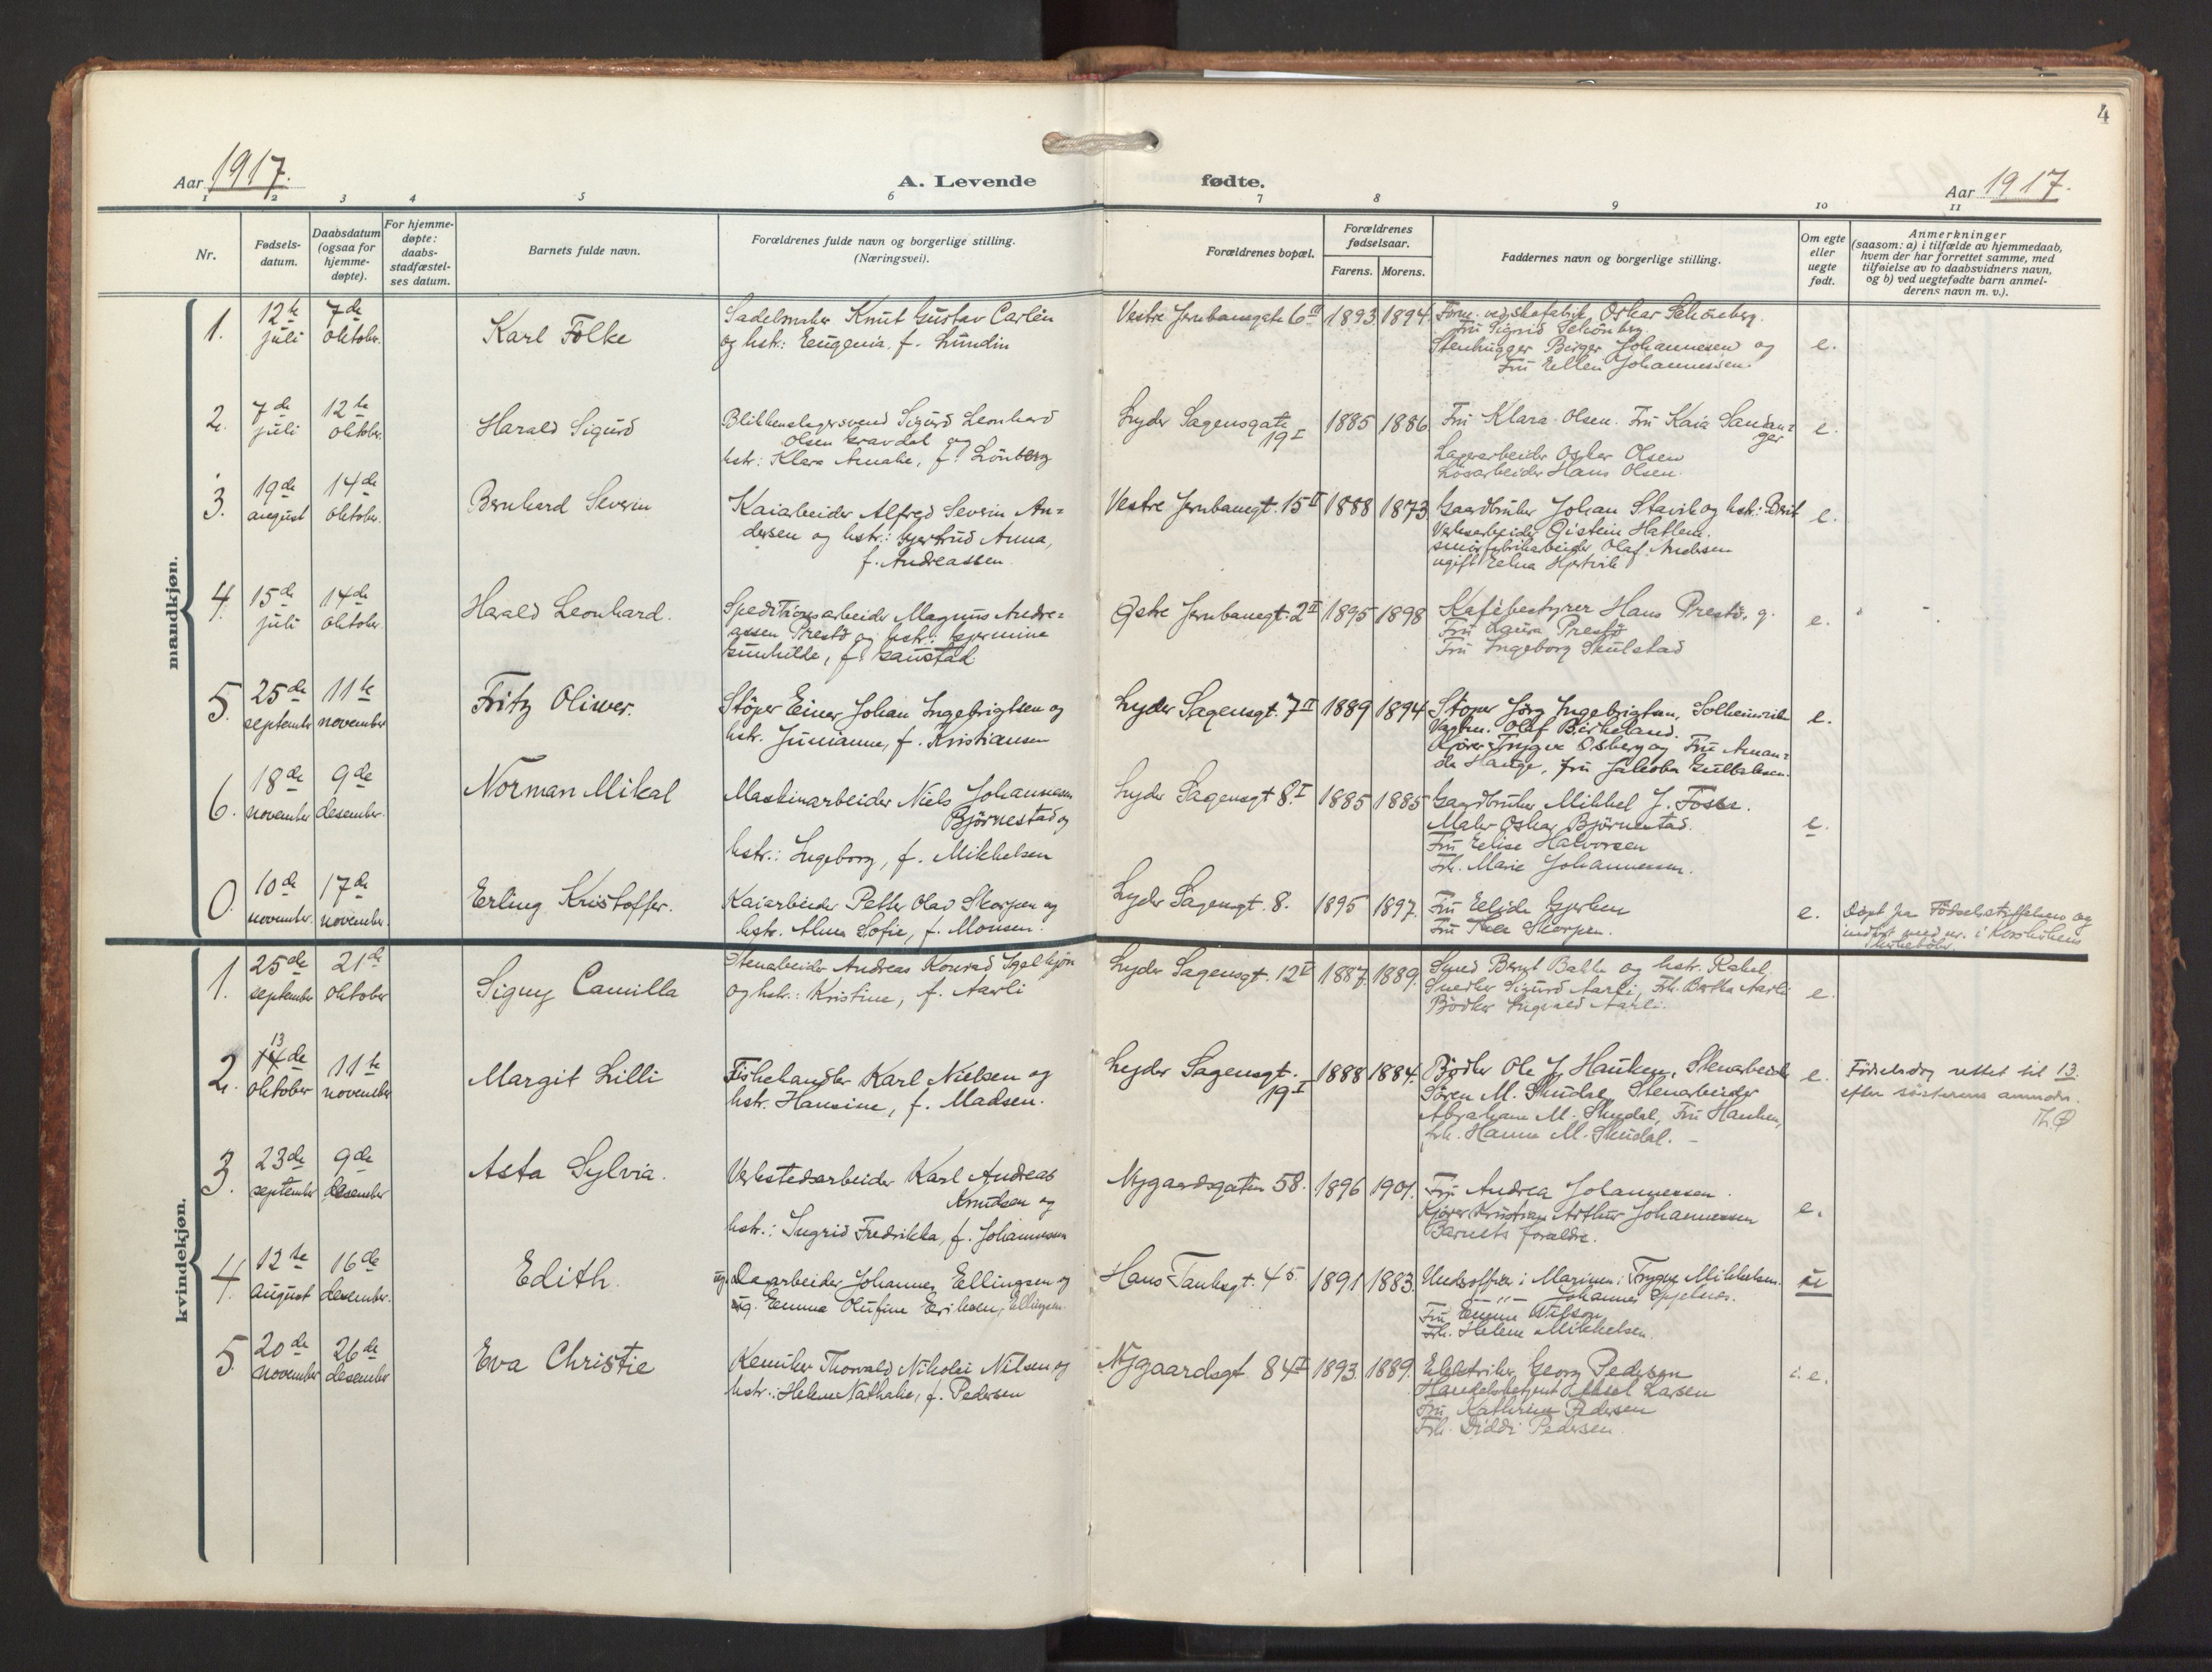 4
Aar 1917.
A. Levende
fødte.
Aar 1917.
1 2 3 4 5 6 7 8 9 10 11
Nr.
Fødsels-
datum.
Daabsdatum
(ogsaa for
hjemme-
døpte).
For hjemme-
døpte:
daabs-
stadfæstel-
ses datum.
Barnets fulde navn.
Forældrenes fulde navn og borgerlige stilling.
(Næringsvei).
Forældrenes bopæl.
Forældrenes
fødselsaar.
Farens. Morens.
Faddernes navn og borgerlige stilling.
Om egte
eller
uegte
født.
Anmerkninger
(saasom: a) i tilfælde av hjemmedaab,
hvem der har forrettet samme, med
tilføielse av to daabsvidners navn,
og b) ved uegtefødte barn anmel-
derens navn m. v.).
mandkjøn.
1.
12te
juli
7de
oktober.
Karl Folke
Sadelmaker Knut Gustav Carlén
og hstr: Eugenia. f. Lundin
Vestre Jernbanegate 6 II
1893
1894
Form. ved skofabrik, Oskar Schönberg.
Fru Sigrid Schönberg.
Stenhugger Birger Johannesen og
Fru Ellen Johannessen.
e.
2.
7de
juli
12te
oktober.
Harald Sigurd
Blikkenslagersvend Sigurd Leonhard
Olsen Gravdal og
hstr: Klara Amalie, f. Lönberg
Lyder Sagensgate
19 I
1885
1886
Fru Klara Olsen. Fru Kaia Sandan=
ger
Lagerarbeider Oskar Olsen
Løsarbeider Hans Olsen.
e.
3.
19de
august
14de
oktober.
Bernhard Severin
Kaiarbeider Alfred Severin An=
dersen og hstr.: Gjertrud Anna,
f. Andreassen.
Vestre Jernbanegt. 15 II
1888
1873
Gaardbruker Johan Stavik og hstr: Berit
Verksarbeider Øistein Hatlem.
smörfabrikarbeider Olaf Andersen
ugift Elna Hjertvik
e.
4.
15de
juli
14de
oktober.
Harald Leonhard.
Speditionsarbeider Magnus Andre=
assen Prestö og hstr: Hjermine
Gunhilde, f. Gaustad
Østre Jernbanegt. 2 II
1895
1898
Kafébestyrer Hans Prestö, g.
Fru Laura Prestö
Fru Ingeborg Skulstad
e.
5.
25de
september
11te
november
Fritz Oliver.
Stöper Einar Johan Ingebrigtsen og
hstr. Junianne, f. Kristiansen
Lyder Sagensgt. 7 II
1889
1894
Stöper Jörg Ingebrigtsen, Solheimsviken
Vagtm. Olaf Birkeland.
Kjörer Trygve Osberg og Fru Aman=
da Hauge, fru Jakoba Gulbransen.
e.
6.
18de
november
9de
desember.
Norman Mikal
Maskinarbeider Niels Johannesen
Björnestad og
hstr.: Ingeborg, f. Mikkelsen
Lyder Sagensgt 8. I
1885
1885
Gaardbruker Mikkel J. Fosse.
Maler Oskar Björnestad.
Fru Elise Halvorsen
Frk. Marie Johannessen.
e.
0.
10de
november.
17de
november.
Erling Kristoffer.
Kaiarbeider Petter Olav Skorpen og
hstr. Alma Sofie, f. Monsen.
Lyder Sagensgt. 8.
1895
1897.
Fru Elida Gjerken
Fru Thea Skorpen.
e.
Döpt paa Födselsstiftelsen og
indført med nr. i Korskirkens
kirkebok.
kvindekjøn.
1.
25de
september
21de
oktober
Signy Camilla
Stenarbeider Andreas Konrad Igelkjön
og hstr.: Kristine, f. Aarli
Lyder Sagensgt. 12 II
1887.
1889.
Smed Bernt Bakke og hstr. Rakel.
Snedker Sigurd Aarli, Frk. Bertha Aarli
Bödker Ingvald Aarli.
e.
2.
13
14de
oktober
11te
november
Margit Lilli
Fiskehandler Karl Nielsen og
hstr. Hansine, f. Madsen.
Lyder Sagensgt.
19 I
1888
1884.
Bødker Ole J. Hauken, Stenarbeider
Sören M. Skudal, Stenarbeider
Abraham M. Skudal, Fru Hauken,
frk. Hanna M. Skudal. -
e.
Födselsdag rettet til 13.
efter søsterens anmodn.
3.
23de
september
9de
desember
Asta Sylvia.
Verkstedsarbeider Karl Andreas
Knudsen og
hstr.: Ingrid Fredrikka, f. Johannessen
Nygaardsgaten 58.
1896
1901.
Fru Andrea Johannessen.
Kjörer Kristian Arthur Johannessen
Barnets forældre.
e.
4.
12te
august
16de
desember.
Edith.
ug. Løsarbeider Johannes Ellingsen og
ug. Emma Olufine Eriksen, Ellingsen
Hans Tanksgt. 45
1891
1883.
Underofficer i Marinen: Trygve Mikkelsen.
— " — Johannes Gjelnes.
Fru Emma Wilson
Frk. Helene Mikkelsen.
u
5.
20de
november
26de
desember
Eva Christie
Kemiker Thorvald Nikolai Nilsen og
hstr.: Helene Nathalie, f. Pedersen
Nygaardsgt 84 I
1893.
1889.
Elektriker Georg Pedersen
Handelsbetjent Aksel Larsen
Fru Kathrine Pedersen
Frk. Diddi Pedersen.
e.